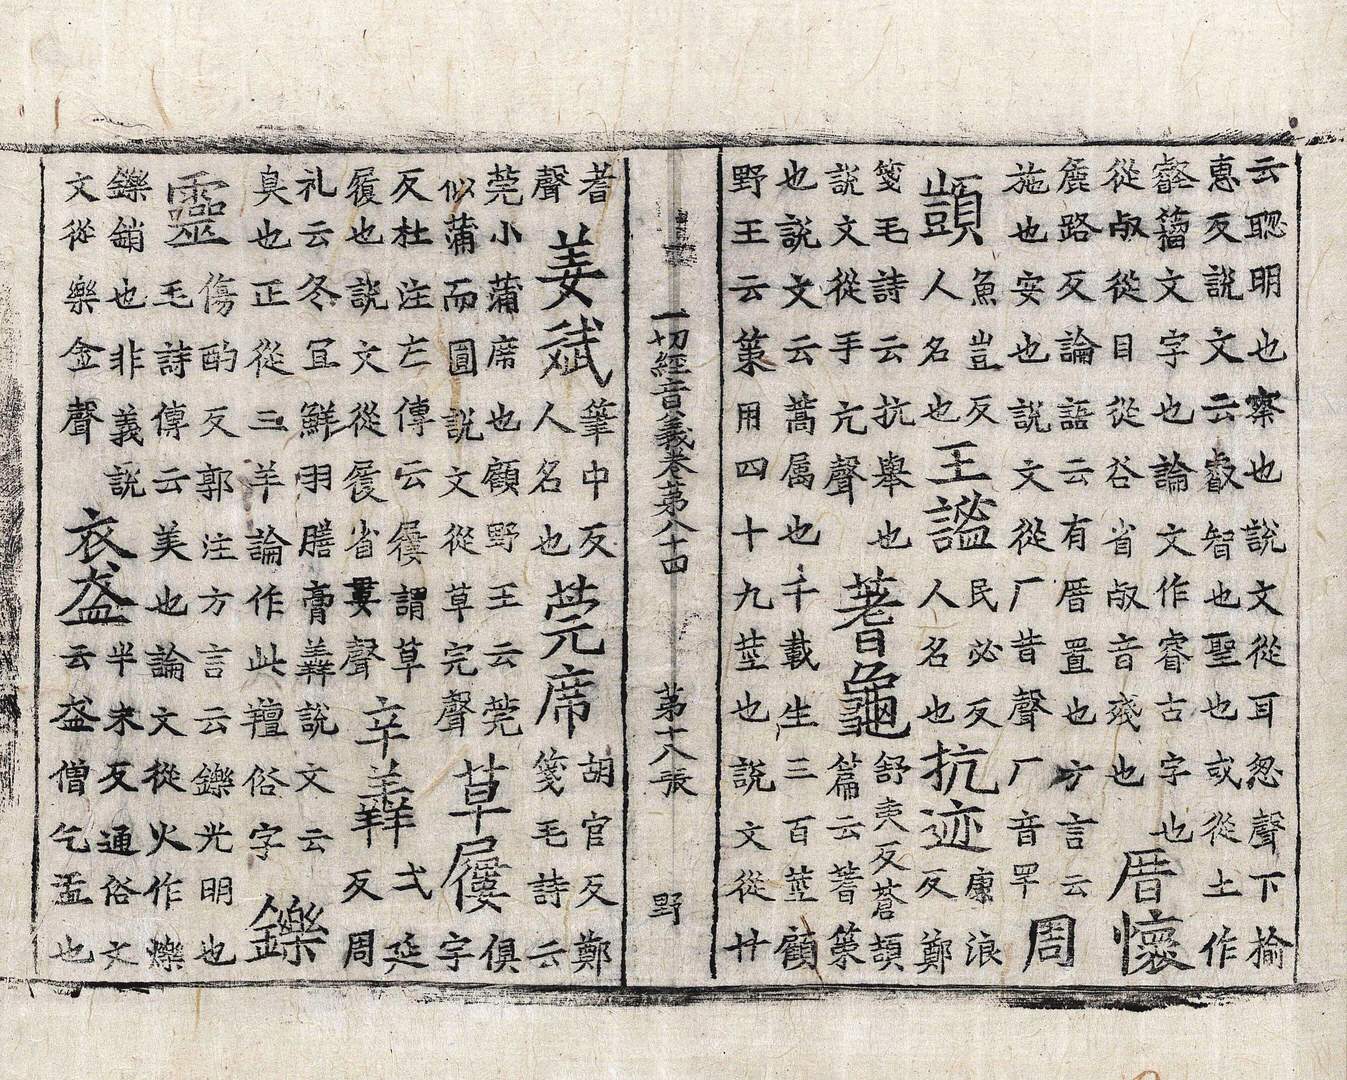 云聦明也察也說文從耳怱聲下揄
惠反說文云叡智也聖也或從土作
壡籀文字也論文作睿古字也
從㕡從目從谷省㕡音殘也
厝懷
麁路反論語云有厝置也方言云
施也安也說文從厂昔聲厂音罕
周
顗
魚豈反
人名也
王謐
民必反
人名也
抗迹
康浪
反鄭
箋毛詩云抗舉也
說文從手亢聲
蓍龜
舒夷反蒼頡
篇云蓍策
也說文云蒿属也千載生三百莖顧
野王云策用四十九莖也說文從廾
一切經音義卷第八十四 第十八張 野
耆
聲
姜斌
筆中反
人名也
莞席
胡官反鄭
箋毛詩云
莞小蒲席也顧野王云莞
似蒲而圓說文從草完聲
草屨
俱
宇
反杜注左傳云屨謂草
履也說文從履省婁聲
辛羴
弋延
反周
礼云冬宜鮮羽膳膏羴說文云
臭也正從三羊論作此羶俗字
鑠
靈
傷酌反郭注方言云鑠光明也
毛詩傳云美也論文從火作爍
鑠銷也非義說
文從樂金聲
衣盋
半末反通俗文
云盋僧乞盂也